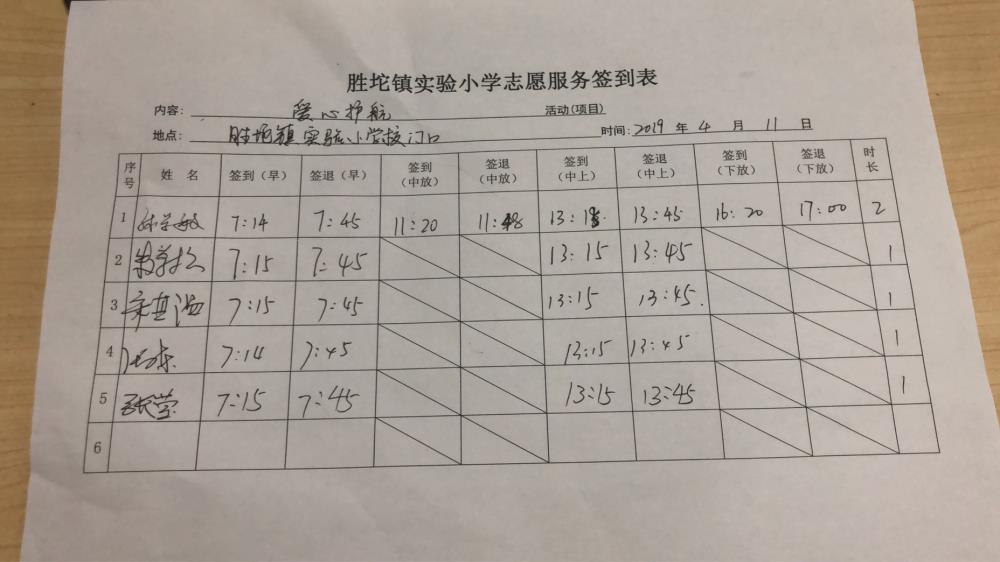 胜坨镇实验小学志愿服务签到表
内容: 爱心护航 活动(项目)
地点: 胜坨镇实验小学校门口 时间: 2019 年 4 月 11 日
序号 姓 名 签到（早） 签退（早） 签到（中放） 签退（中放） 签到（中上） 签退（中上） 签到（下放） 签退（下放） 时长
1 7:14 7:45 11:20 11:48 13:15 13:45 16:20 17:00 2
2 7:15 7:45 13:15 13:45 1
3 7:15 7:45 13:15 13:45 1
4 7:14 7:45 13:15 13:45 1
5 张莹 7:15 7:45 13:15 13:45 1
6